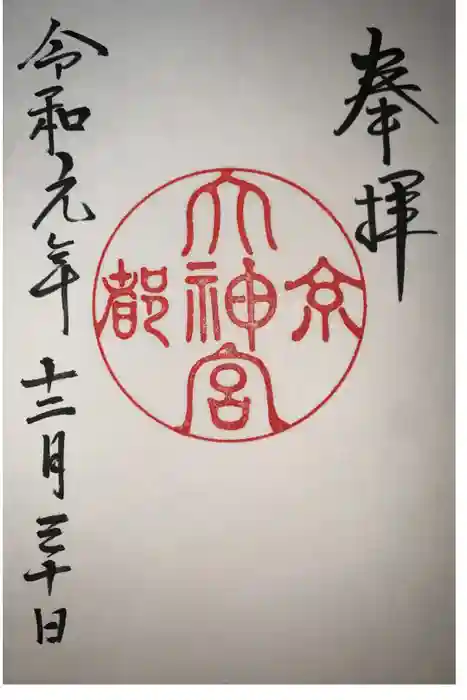 奉拝
京都
大神宮
令和元年十二月三十日